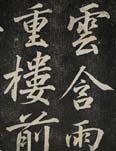 雲含雨
重樓前